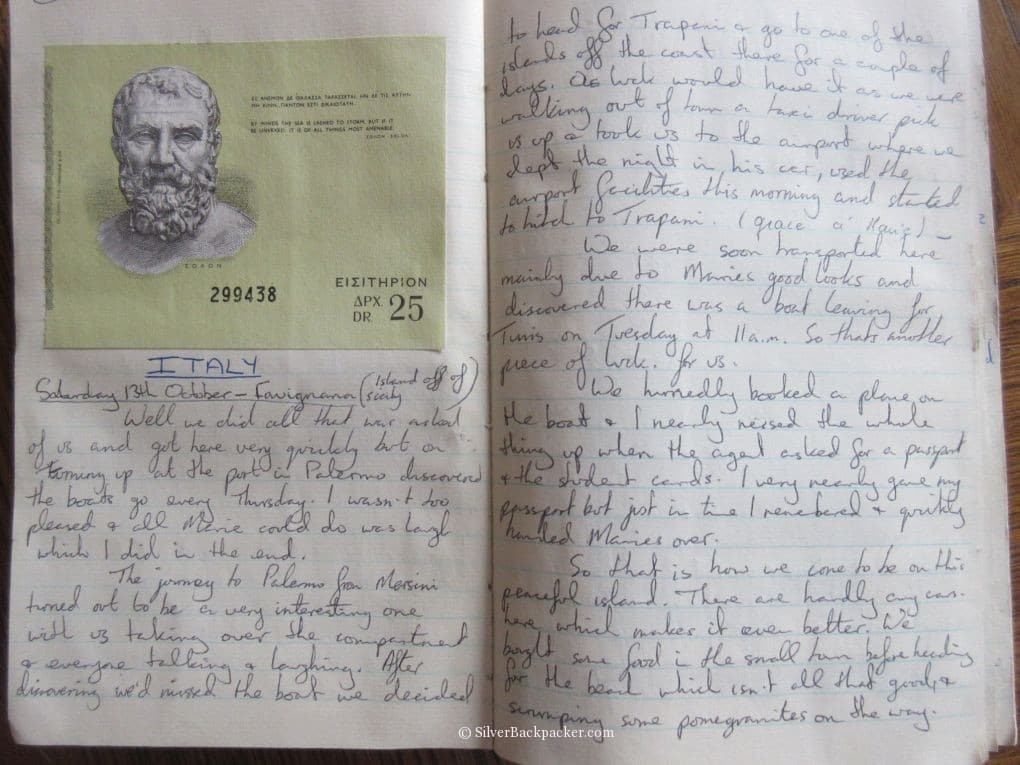 ΕΞ ΑΝΕΜΩΝ ΔΕ ΘΑΛΑΣΣΑ ΤΑΡΑΣΣΕΤΑΙ ΗΝ ΔΕ ΤΙΣ ΑΥΤΗΝ
ΜΗ ΚΙΝΗι, ΠΑΝΤΩΝ ΕΣΤΙ ΔΙΚΑΙΟΤΑΤΗ.
BY WINDS THE SEA IS LASHED TO STORM, BUT IF IT
BE UNVEXED, IT IS OF ALL THINGS MOST AMENABLE.
ΣΟΛΩΝ - SOLON
ΣΟΛΩΝ
299438
ΕΙΣΙΤΗΡΙΟΝ
ΔΡΧ.
DR. 25
ITALY
Saturday 13th October - Favignana (island off of
sicily)
Well we did all that was asked
of us and got here very quickly but on
turning up at the port in Palermo discovered
the boats go every Thursday. I wasn't too
pleased & all Marie could do was laugh
which I did in the end.
The journey to Palermo from Mersini
turned out to be a very interesting one
with us taking over the compartment
& everyone talking & laughing. After
discovering we'd missed the boat we decided
to head for Trapani & go to one of the
islands off the coast there for a couple of
days. As luck would have it as we were
walking out of town a taxi driver pick
us up & took us to the airport where we
slept the night in his car, used the
airport facilities this morning and started
to hitch to Trapani. (grace a Marie) -
We were soon transported here
mainly due to Maries good looks and
discovered there was a boat leaving for
Tunis on Tuesday at 11a.m. So thats another
piece of luck. for us.
We hurriedly booked a place on
the boat & I nearly messed the whole
thing up when the agent asked for a passport
& the student cards. I very nearly gave my
passport but just in time I remembered & quickly
handed Maries over.
So that is how we come to be on this
peaceful island. There are hardly any cars.
here which makes it even better. We
bought some food in the small town before heading
for the beach which isn't all that good, &
scrumping some pomegranites on the way.
© SilverBackpacker.com